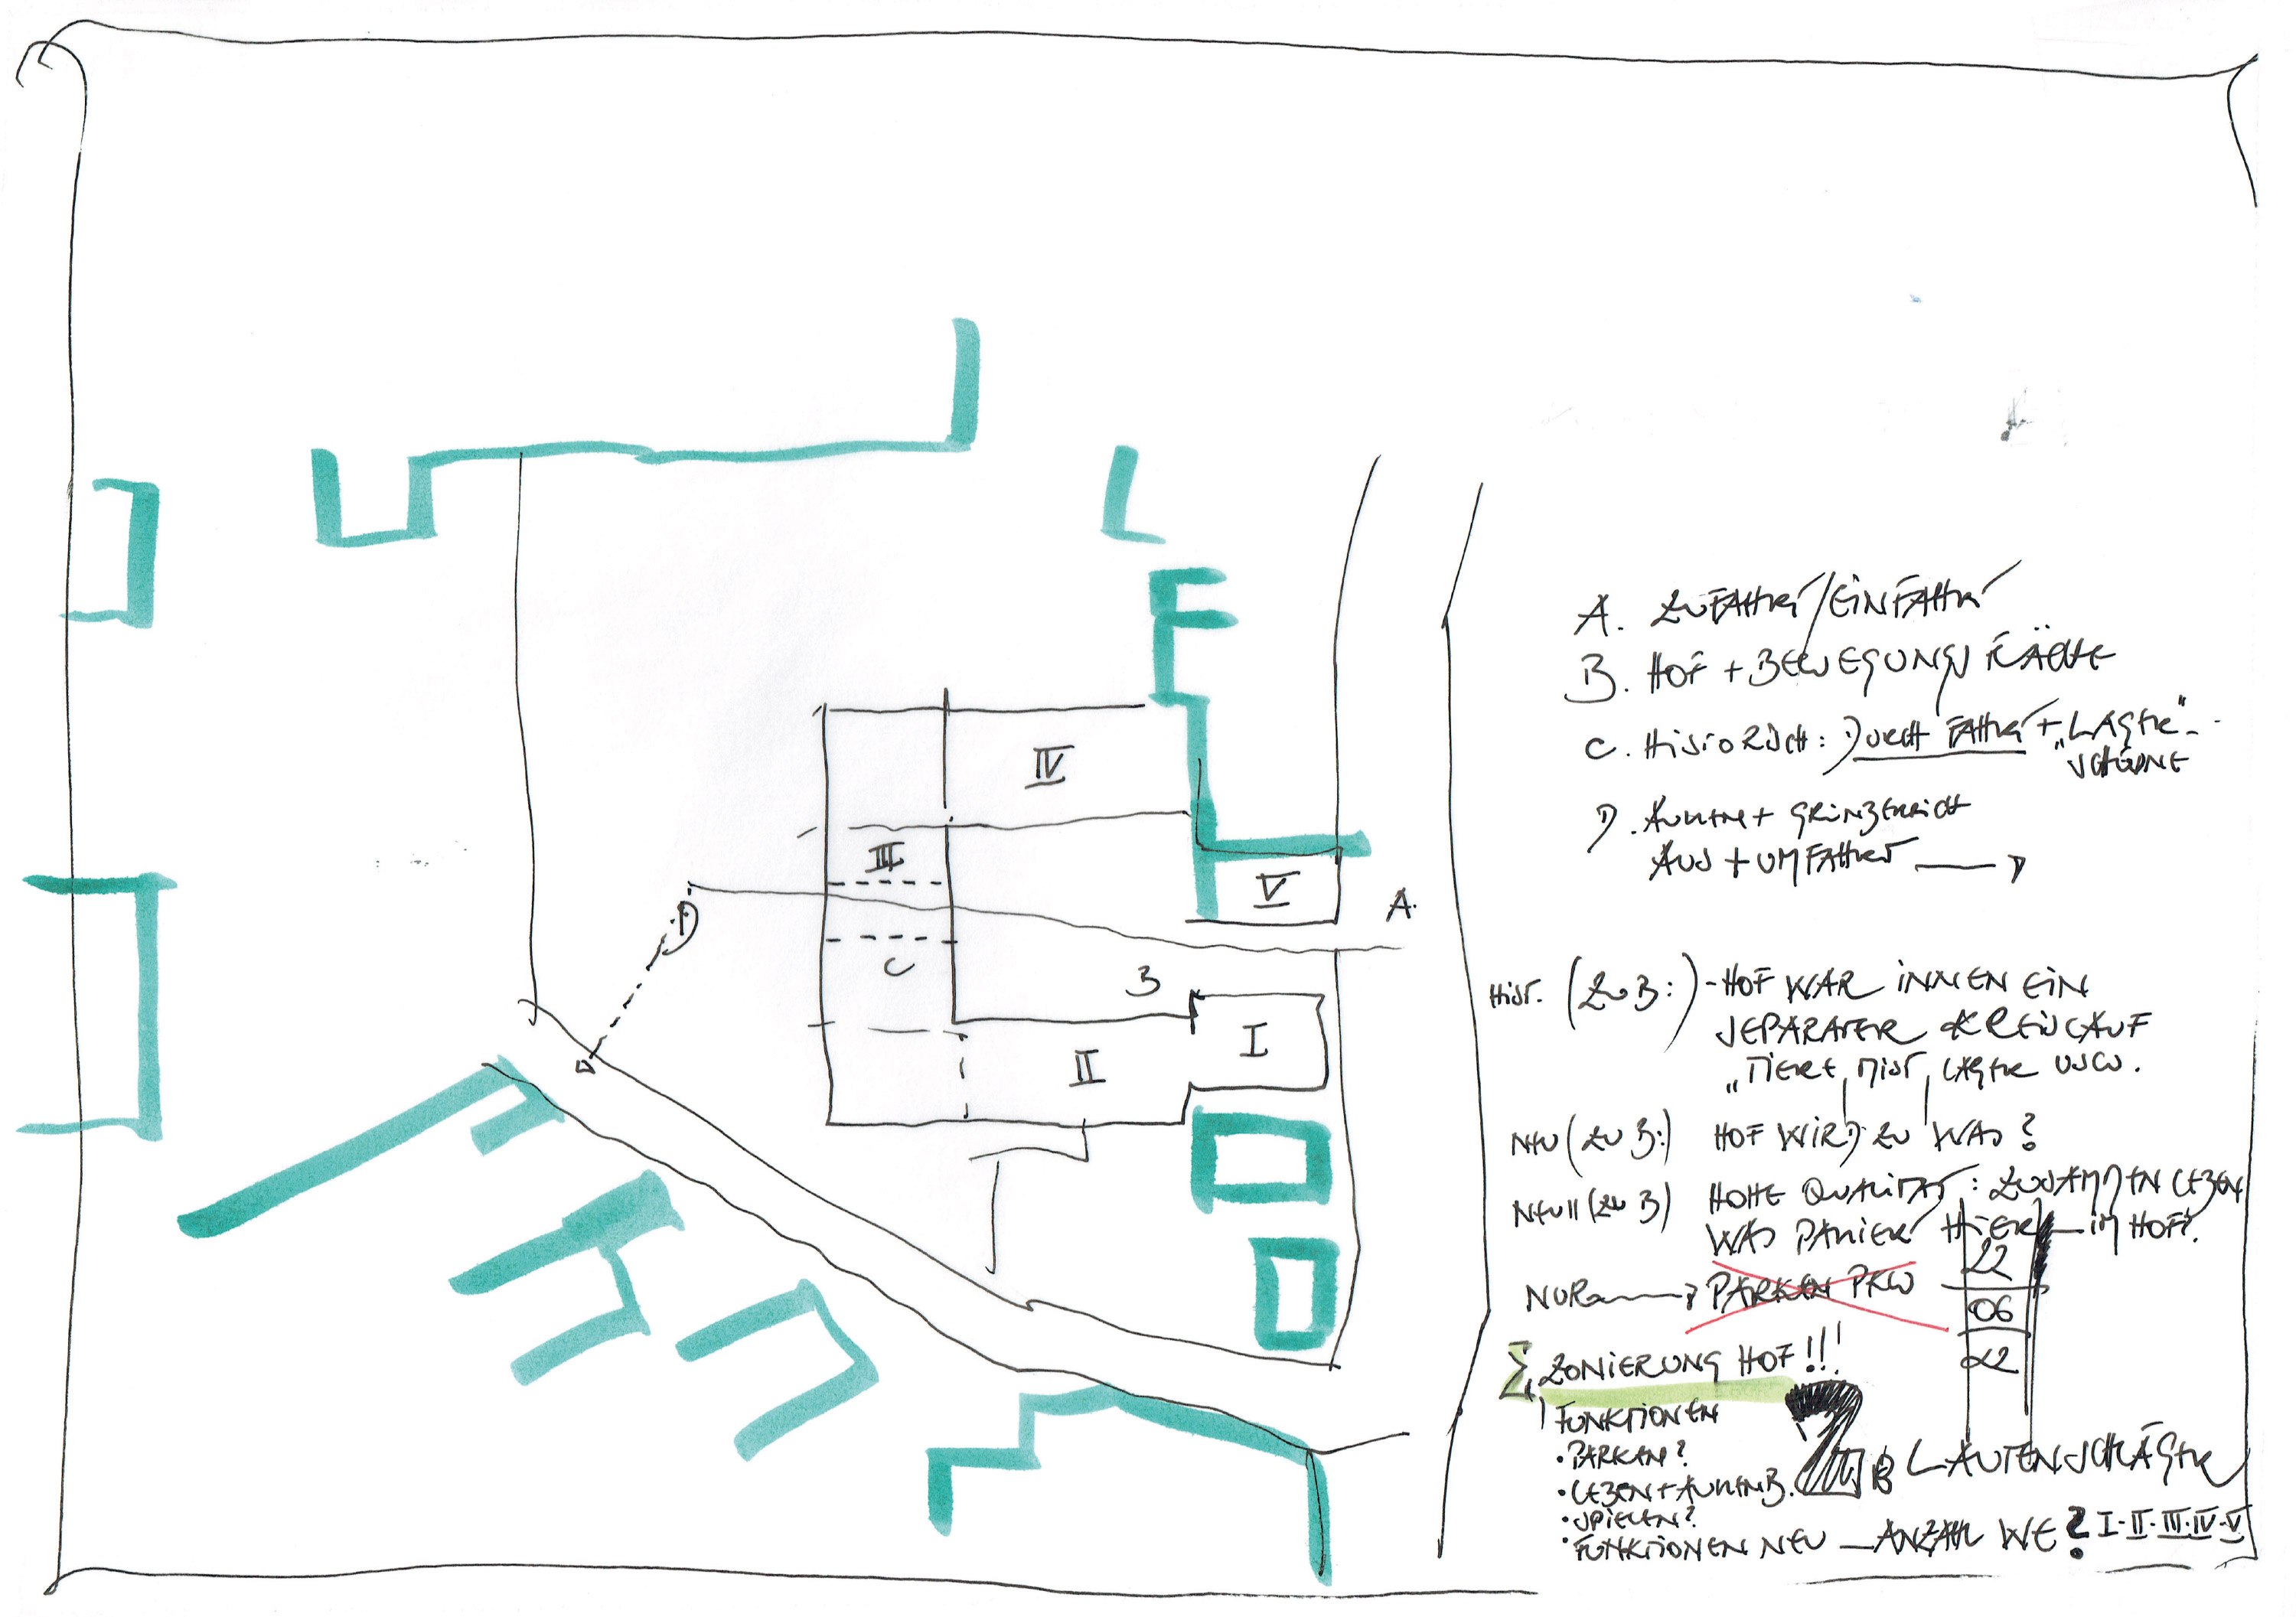 IV
III
V
A.
D
C
B
I
II
A. ZUFAHRT/EINFAHRT
B. HOF + BEWEGUNGSFLÄCHE
C. HISTORISCH: DURCHFAHRT + „LAGER"-
SCHEUNE
D. AUSSEN + GRÜNBEREICH
AUS + UMFAHRT
HIST. (ZU B:) - HOF WAR INNEN EIN
SEPARATER KREISLAUF
„TIERE, MIST, LAGER USW.
NEU (ZU B:) HOF WIRD ZU WAS?
NEU II (ZU B) HOHE QUALITÄT: ZUSAMMENLEBEN
WAS PASSIERT HIER IM HOF?
NUR PARKEN PKW
22
06
22
Σ ZONIERUNG HOF!!!
FUNKTIONEN
• PARKEN?
• LEBEN + AUSSENB.
• SPIELEN?
• FUNKTIONEN NEU — ANZAHL WE? I-II-III-IV-V
B LAUTENSCHLÄGER